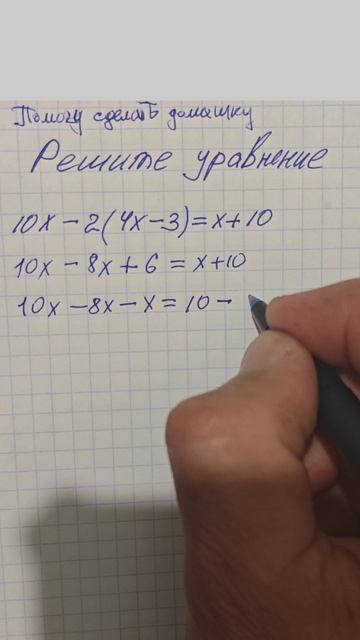 Помогу сделать домашку
Решите уравнение
10x - 2(4x - 3) = x + 10
10x - 8x + 6 = x + 10
10x - 8x - x = 10 -